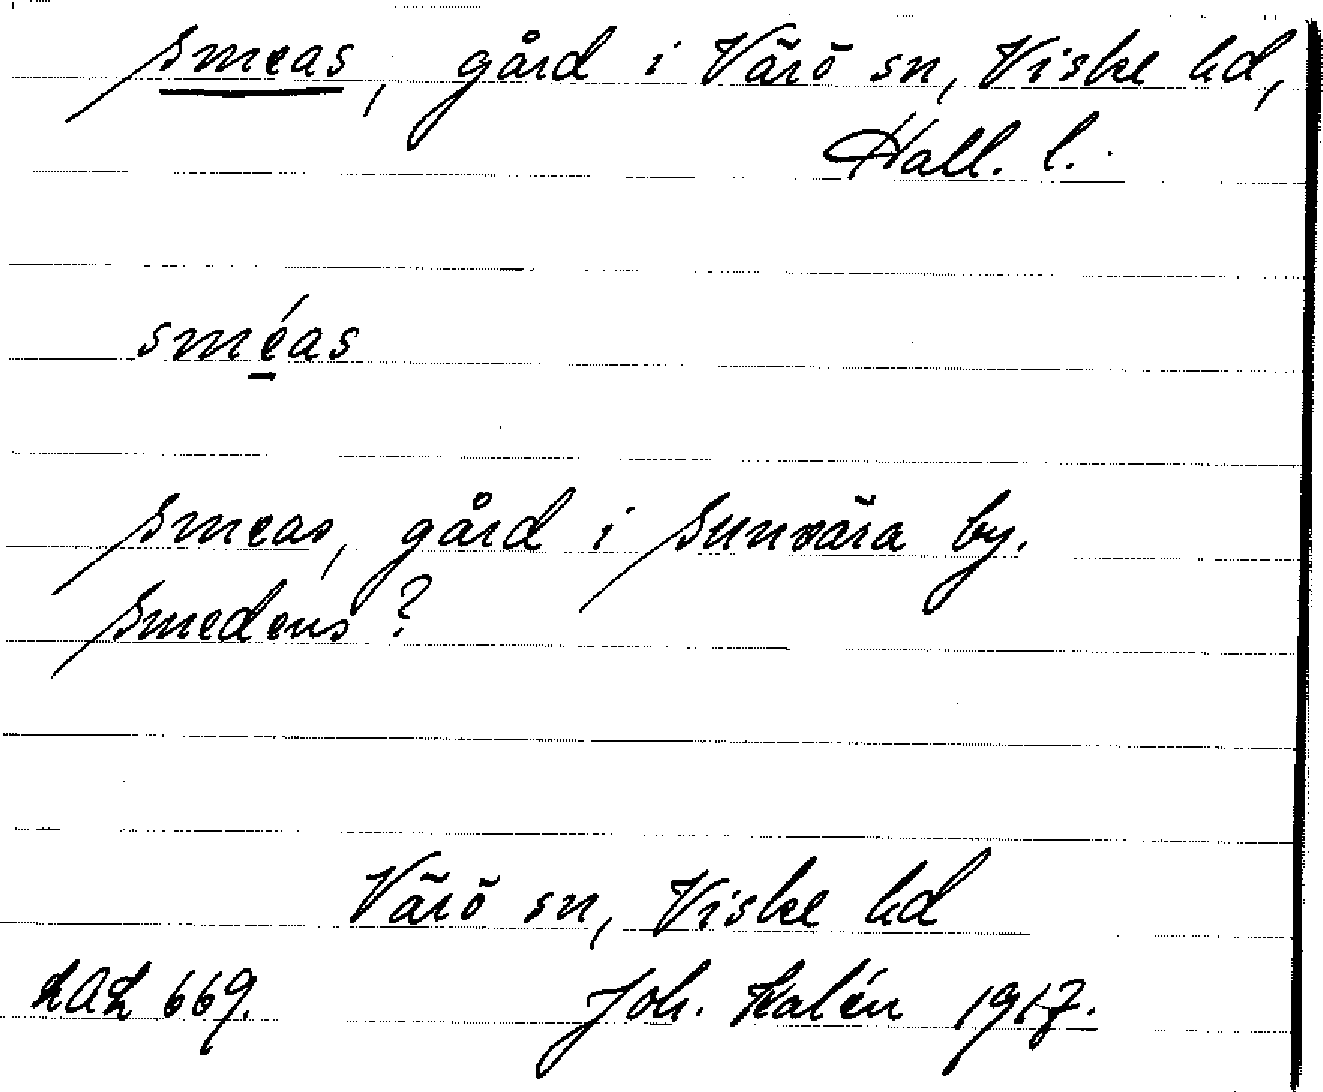 Smeas, gård i Värö sn, Viske hd,
Hall. l.
sméas
Smeas, gård i Sunvära by.
Smedens?
Värö sn, Viske hd
LAL 669. Joh. Kalén 1917.